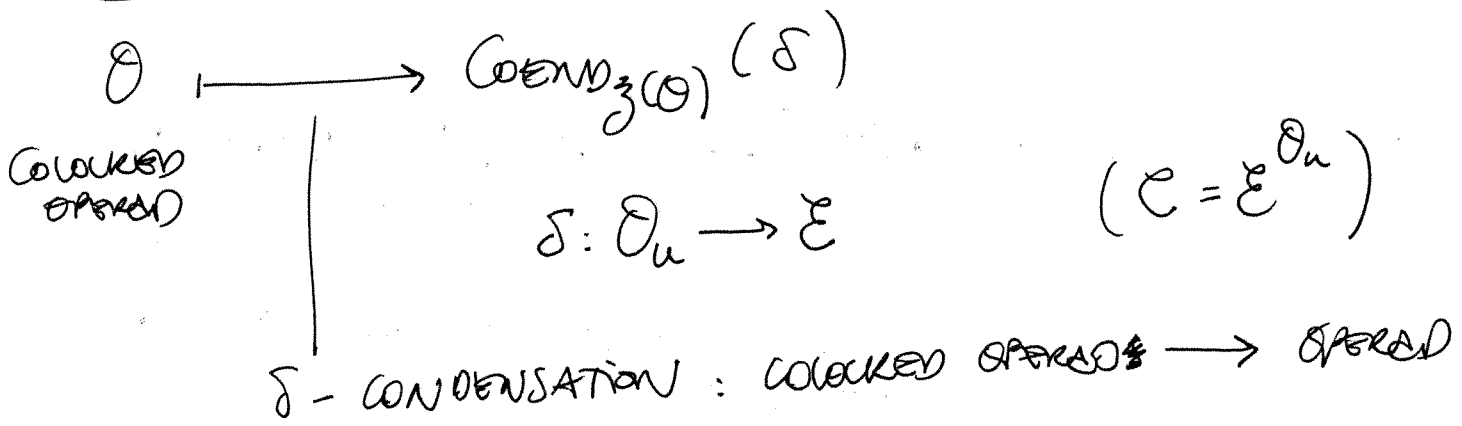 O ↦ COEND_ξ(O) (δ)
COLOURED
OPERAD
δ: O_u → ℰ (C = ℰ^{O_u})
δ - CONDENSATION : COLOURED OPERAD → OPERAD